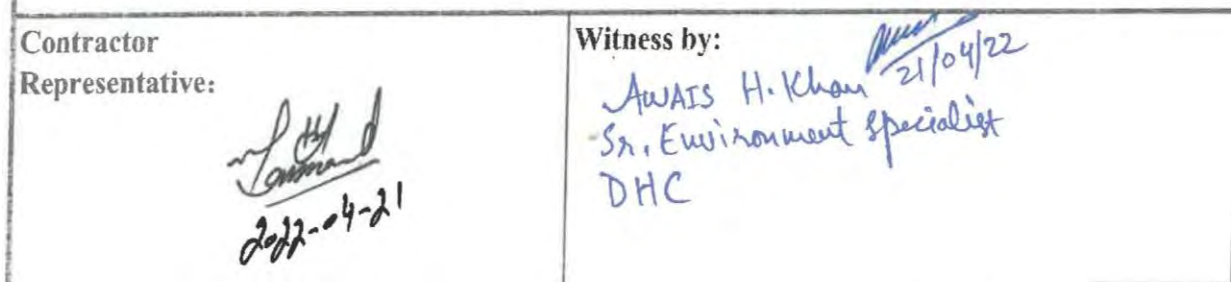 Contractor
Representative:
2022-04-21
Witness by:
21/04/22
AWAIS H. Khan
Sr. Environment Specialist
DHC